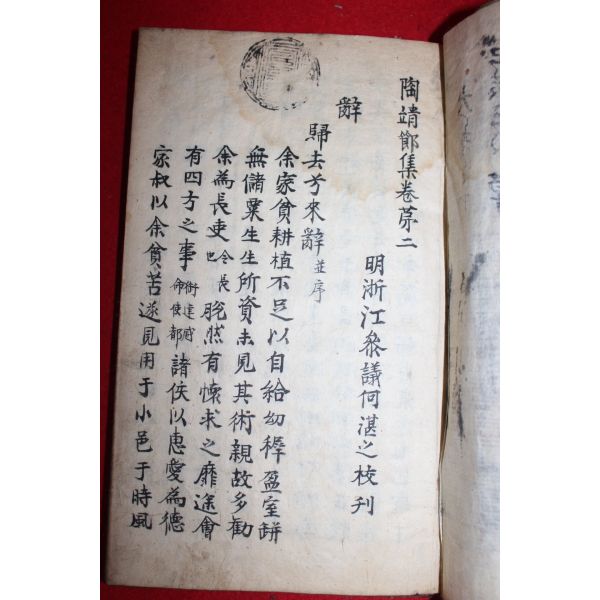 陶靖節集卷苐二
明浙江叅議何湛之校刋
辭
歸去兮來辭並序
余家貧耕植不足以自給幼穉盈室缾
無儲粟生生所資未見其術親故多勸
余為長吏令長也脫然有懷求之靡途會
有四方之事銜建威命使都諸侯以惠愛為德
家叔以余貧苦遂見用于小邑于時風